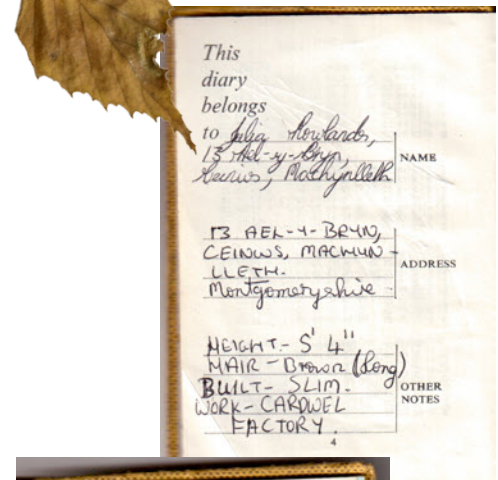 This
diary
belongs
to Julia Rowlands,
13 Ael-y-Bryn,
Ceinws, Machynlleth
NAME
13 AEL-Y-BRYN,
CEINWS, MACHYN-
LLETH.
Montgomeryshire.
ADDRESS
HEIGHT- 5' 4"
HAIR - Brown (Long)
BUILT- SLIM.
WORK- CARDWEL
FACTORY.
OTHER
NOTES
4